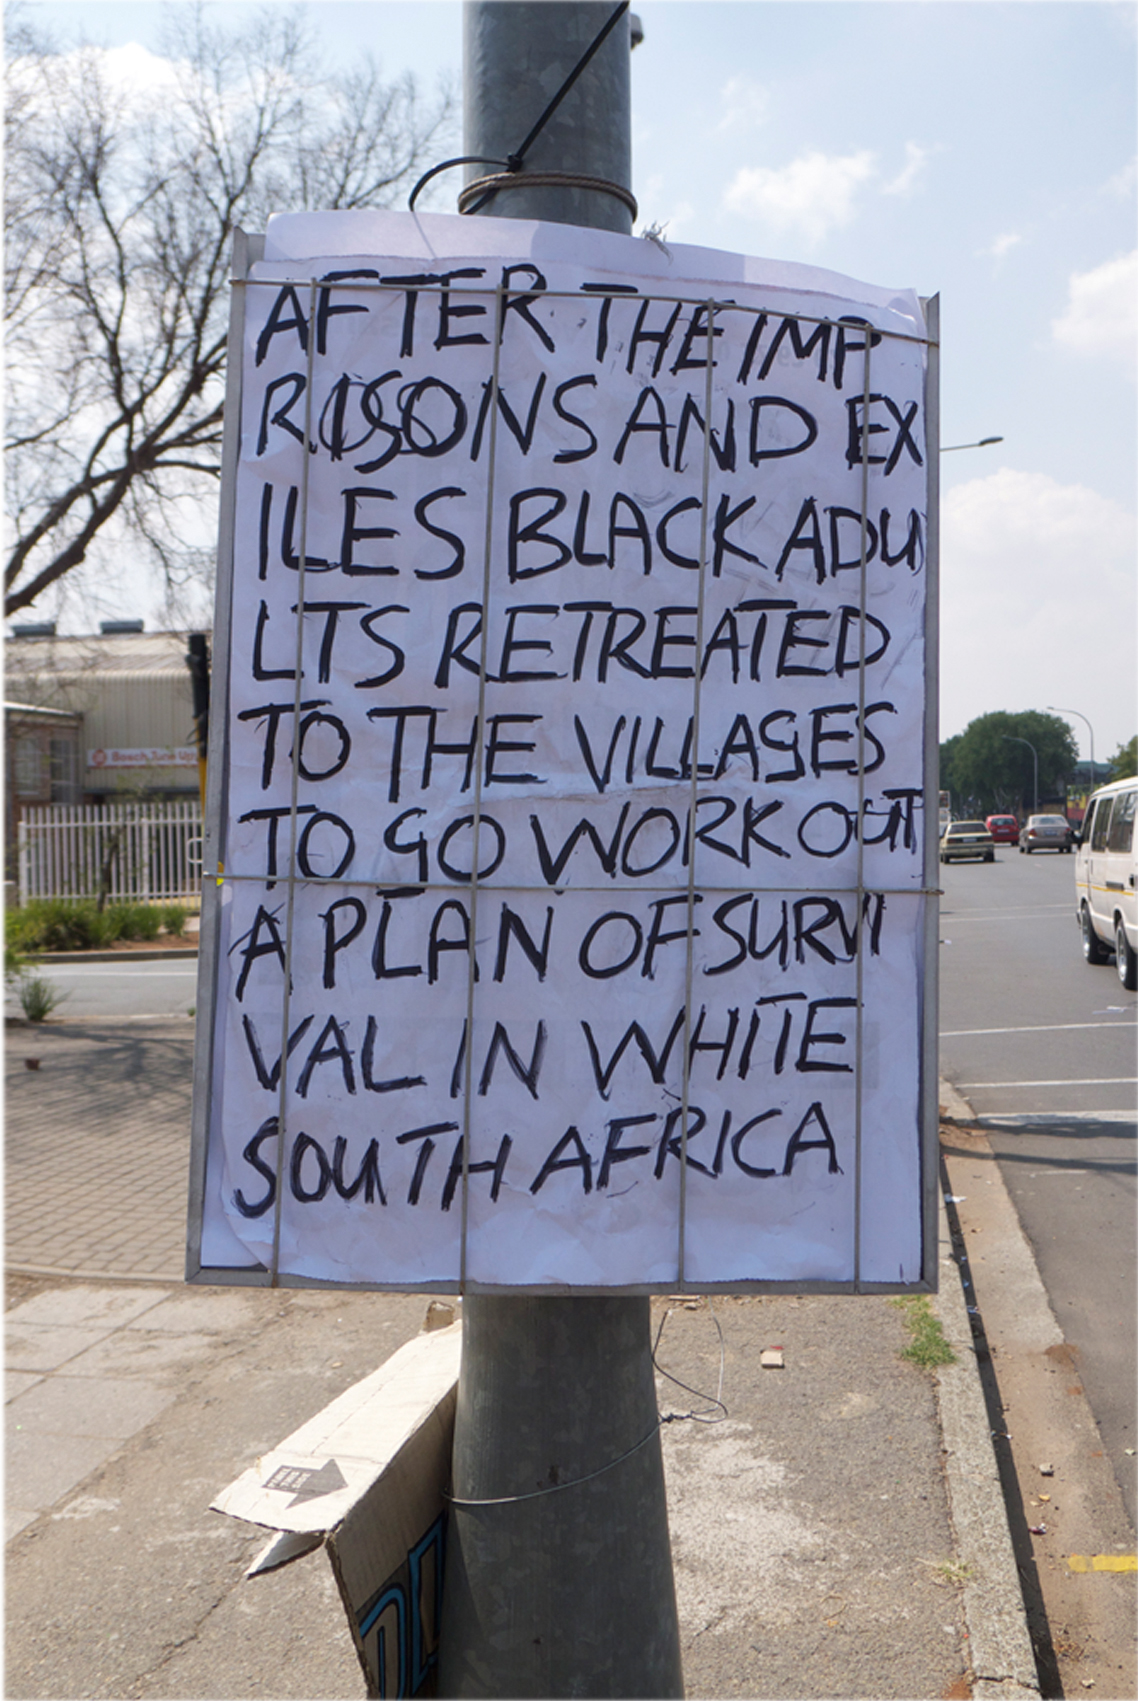 AFTER THE IMP
RISONS AND EX
ILES BLACK ADU
LTS RETREATED
TO THE VILLAGES
TO GO WORK OUT
A PLAN OF SURVI
VAL IN WHITE
SOUTH AFRICA